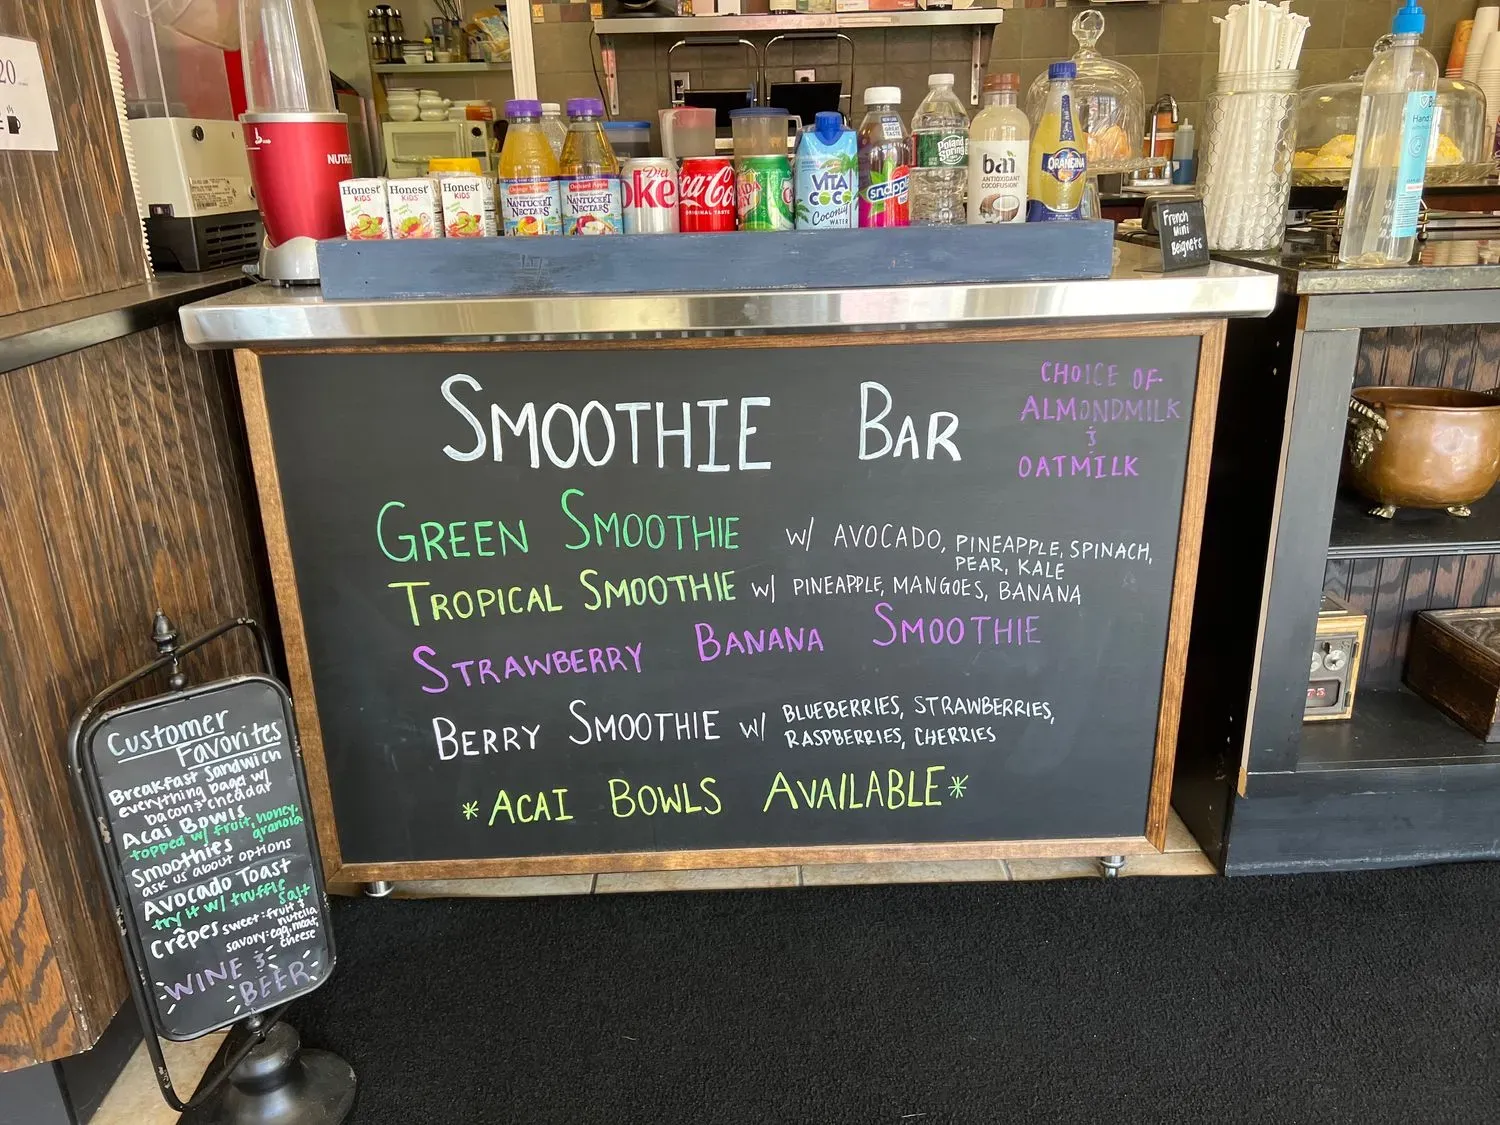 20
NUTRI
Honest
KIDS
Honest
KIDS
Honest
KIDS
Orange Mango
NANTUCKET
NECTARS
Orchard Apple
NANTUCKET
NECTARS
Diet
oke
Coca-Cola
ORIGINAL TASTE
VITA
COCO
Coconut
WATER
snapple
Poland
Spring
bai
ANTIOXIDANT
COCOFUSION
ORANGINA
French
Mini
Beignets
Hand
SMOOTHIE BAR
CHOICE OF
ALMONDMILK
&
OATMILK
GREEN SMOOTHIE W/ AVOCADO, PINEAPPLE, SPINACH,
PEAR, KALE
TROPICAL SMOOTHIE W/ PINEAPPLE, MANGOES, BANANA
STRAWBERRY BANANA SMOOTHIE
BERRY SMOOTHIE W/ BLUEBERRIES, STRAWBERRIES,
RASPBERRIES, CHERRIES
*ACAI BOWLS AVAILABLE*
Customer
Favorites
Breakfast Sandwich
everything bagel w/
bacon & cheddar
Acai Bowls
topped w/ fruit, honey,
granola
Smoothies
ask us about options
Avocado Toast
try it w/ truffle
salt
Crêpes sweet: fruit &
nutella
savory: egg, meat,
cheese
WINE &
BEER